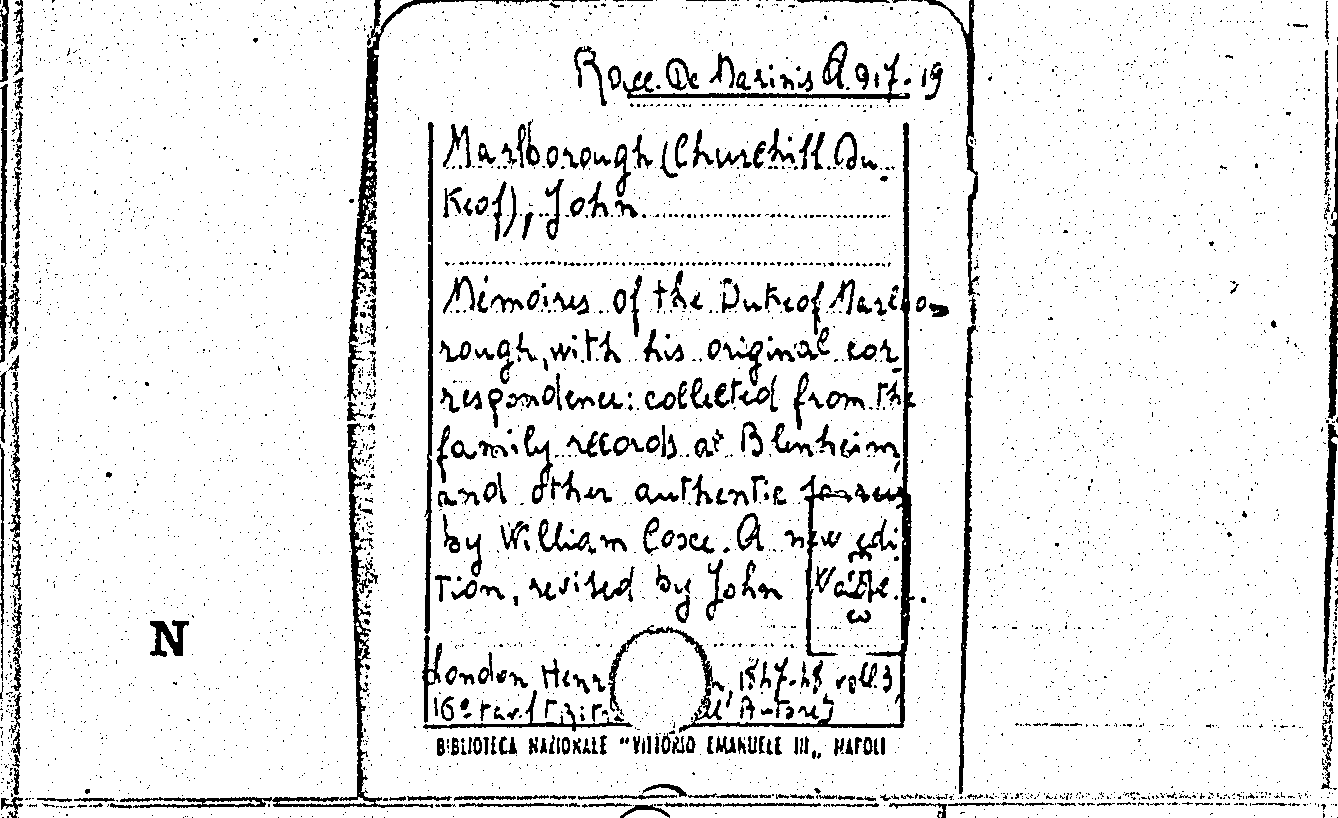 Racc. De Marinis A. 917-19
Marlborough (Churchill Du-
Keof), John
Mémoires of the Dukeof Marlbo=
rough, with his original cor_
respondence: collected from the
family records at Blenheim,
and other authentic
by William Coxe. A new edi.
tion, revised by John
N
London Henr n, 1847-48 voll. 3,
16° tav.
BIBLIOTECA NAZIONALE "VITTORIO EMANUELE III„ NAPOLI